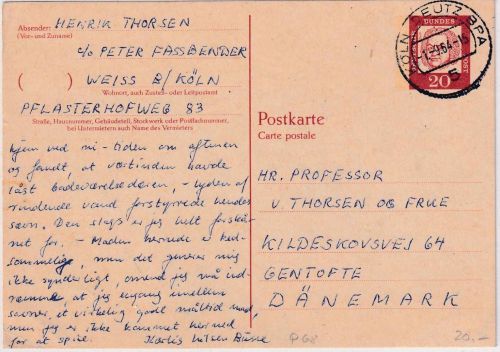 Absender: HENRIK THORSEN
(Vor- und Zuname)
c/o PETER FASSBENDER
( ) WEISS B/ KÖLN
Wohnort, auch Zustell- oder Leitpostamt
PFLASTERHOFWEG 83
Straße, Hausnummer, Gebäudeteil, Stockwerk oder Postfachnummer,
bei Untermietern auch Name des Vermieters
hjem ved ni-tiden om aftenen
og fandt, at værtinden havde
låst badeværelsedøren, - lyden af
rindende vand forstyrrede hendes
søvn. Den slags er jeg helt forskå-
net for. - Maden herude er ked-
sommelig, men det generer mig
ikke synderligt, omend jeg må ind-
rømme, at jeg engang imellem
savner et virkelig godt måltid mad,
men jeg er ikke kommet herned
for at spise. Kærlig hilsen
DEUTSCHE BUNDESPOST
20
KÖLN DEUTZ BPA
5
Postkarte
Carte postale
HR. PROFESSOR
V. THORSEN OG FRUE
KILDESKOVSVEJ 64
GENTOFTE
DÄNEMARK
P68
20.-